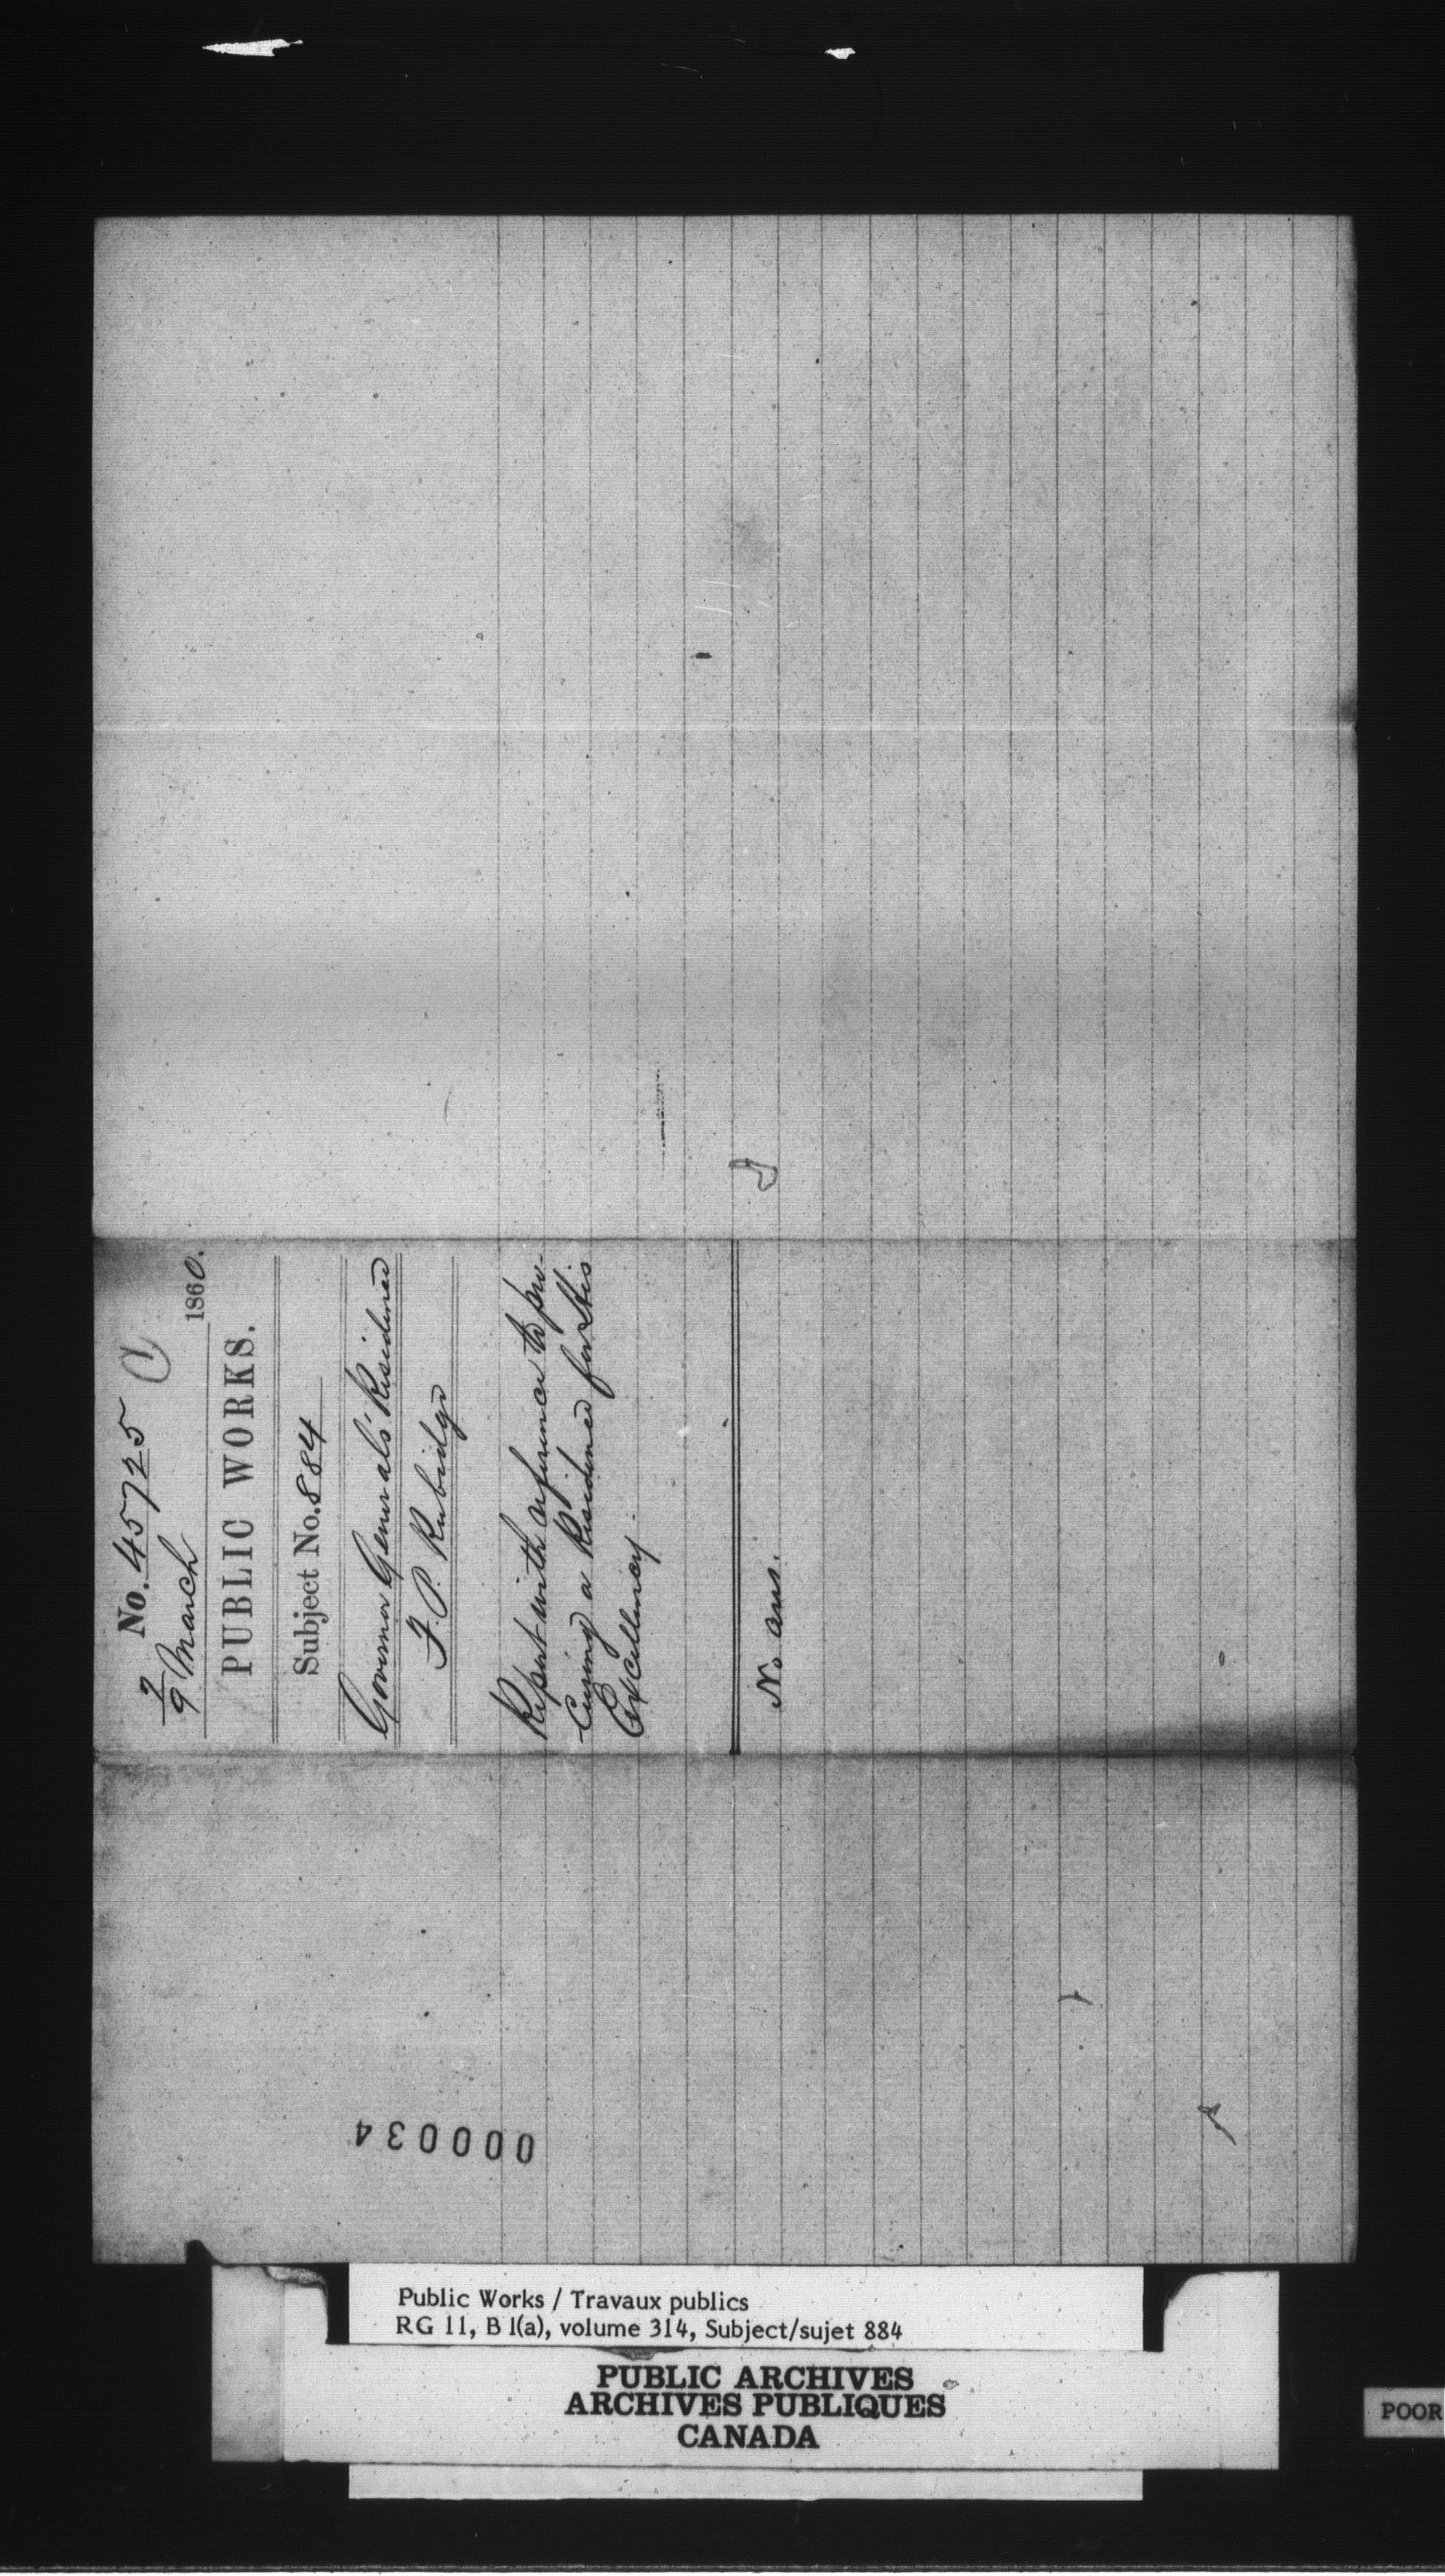 No. 45725
7/9 March 1860.
PUBLIC WORKS.
Subject No. 884
Governor General's Residence
F. P. Rubidge
Report with reference to pro-
curing a Residence for His
Excellency.
No ans.
000034
Public Works / Travaux publics
RG 11, B 1(a), volume 314, Subject/sujet 884
PUBLIC ARCHIVES
ARCHIVES PUBLIQUES
CANADA
POOR